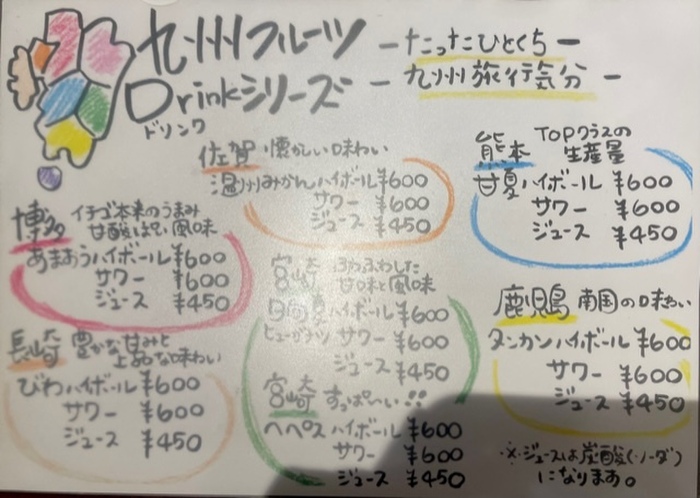 九州フルーツ
Drinkシリーズ
ドリンク
－たったひとくち－
－九州旅行気分－
佐賀 懐かしい味わい
温州みかんハイボール ¥600
サワー ¥600
ジュース ¥450
熊本 TOPクラスの
生産量
甘夏ハイボール ¥600
サワー ¥600
ジュース ¥450
博多 イチゴ本来のうまみ
甘酸っぱい風味
あまおうハイボール ¥600
サワー ¥600
ジュース ¥450
宮崎 ふわふわした
甘味と風味
日向夏ハイボール ¥600
ヒューガナツ サワー ¥600
ジュース ¥450
鹿児島 南国の味わい
タンカンハイボール ¥600
サワー ¥600
ジュース ¥450
長崎 豊かな甘みと
上品な味わい
びわハイボール ¥600
サワー ¥600
ジュース ¥450
宮崎 すっぱーい!!
ヘベス ハイボール ¥600
サワー ¥600
ジュース ¥450
※ジュースは炭酸(ソーダ)
になります。